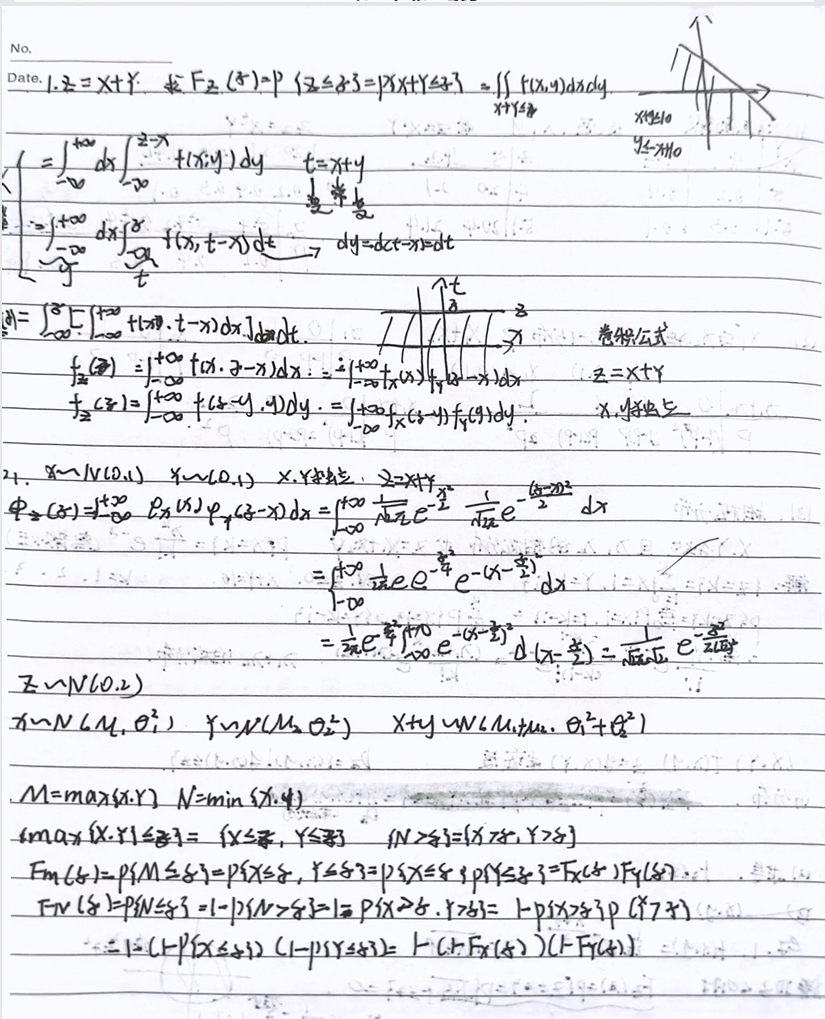 No.
Date. 1. Z = X+Y. F_Z(z)=P{Z≤z}=P{X+Y≤z} =∬_{x+y≤z} f(x,y)dxdy
x+y≤10
y≤-x+10
=∫_{-∞}^{+∞} dx∫_{-∞}^{z-x} f(x,y)dy t=x+y
=∫_{-∞}^{+∞} dx∫_{-∞}^{z} f(x, t-x)dt → dy=d(t-x)=dt
y t
=∫_{-∞}^{z}[∫_{-∞}^{+∞} f(x, t-x)dx]dt. t z z x 卷积公式
f_Z(z) =∫_{-∞}^{+∞} f(x, z-x)dx =∫_{-∞}^{+∞} f_X(x) f_Y(z-x)dx Z=X+Y
f_Z(z)=∫_{-∞}^{+∞} f(z-y, y)dy =∫_{-∞}^{+∞} f_X(z-y)f_Y(y)dy. X,Y独立
21. X~N(0,1) Y~(0,1) X,Y独立. Z=X+Y
φ_Z(z)=∫_{-∞}^{+∞} φ_X(x)φ_Y(z-x)dx =∫_{-∞}^{+∞} 1/√2π e^{-x²/2} 1/√2π e^{-(z-x)²/2} dx
=∫_{-∞}^{+∞} 1/2π e^{-z²/4} e^{-(x-z/2)²} dx
=1/2π e^{-z²/4}∫_{-∞}^{+∞} e^{-(x-z/2)²} d(x-z/2) = 1/√2π√2 e^{-z²/2(√2)²}
Z~N(0,2)
X~N(M₁,σ₁²) Y~N(M₂,σ₂²) X+Y~N(M₁+M₂, σ₁²+σ₂²)
M=max{X,Y} N=min{X,Y}
{max{X,Y}≤z}={X≤z, Y≤z} {N>z}={X>z, Y>z}
F_M(z)=P{M≤z}=P{X≤z, Y≤z}=P{X≤z}P{Y≤z}=F_X(z)F_Y(z)
F_N(z)=P{N≤z}=1-P{N>z}=1-P{X>z, Y>z}=1-P{X>z}P{Y>z}
=1-(1-P{X≤z})(1-P{Y≤z})=1-(1-F_X(z))(1-F_Y(z))